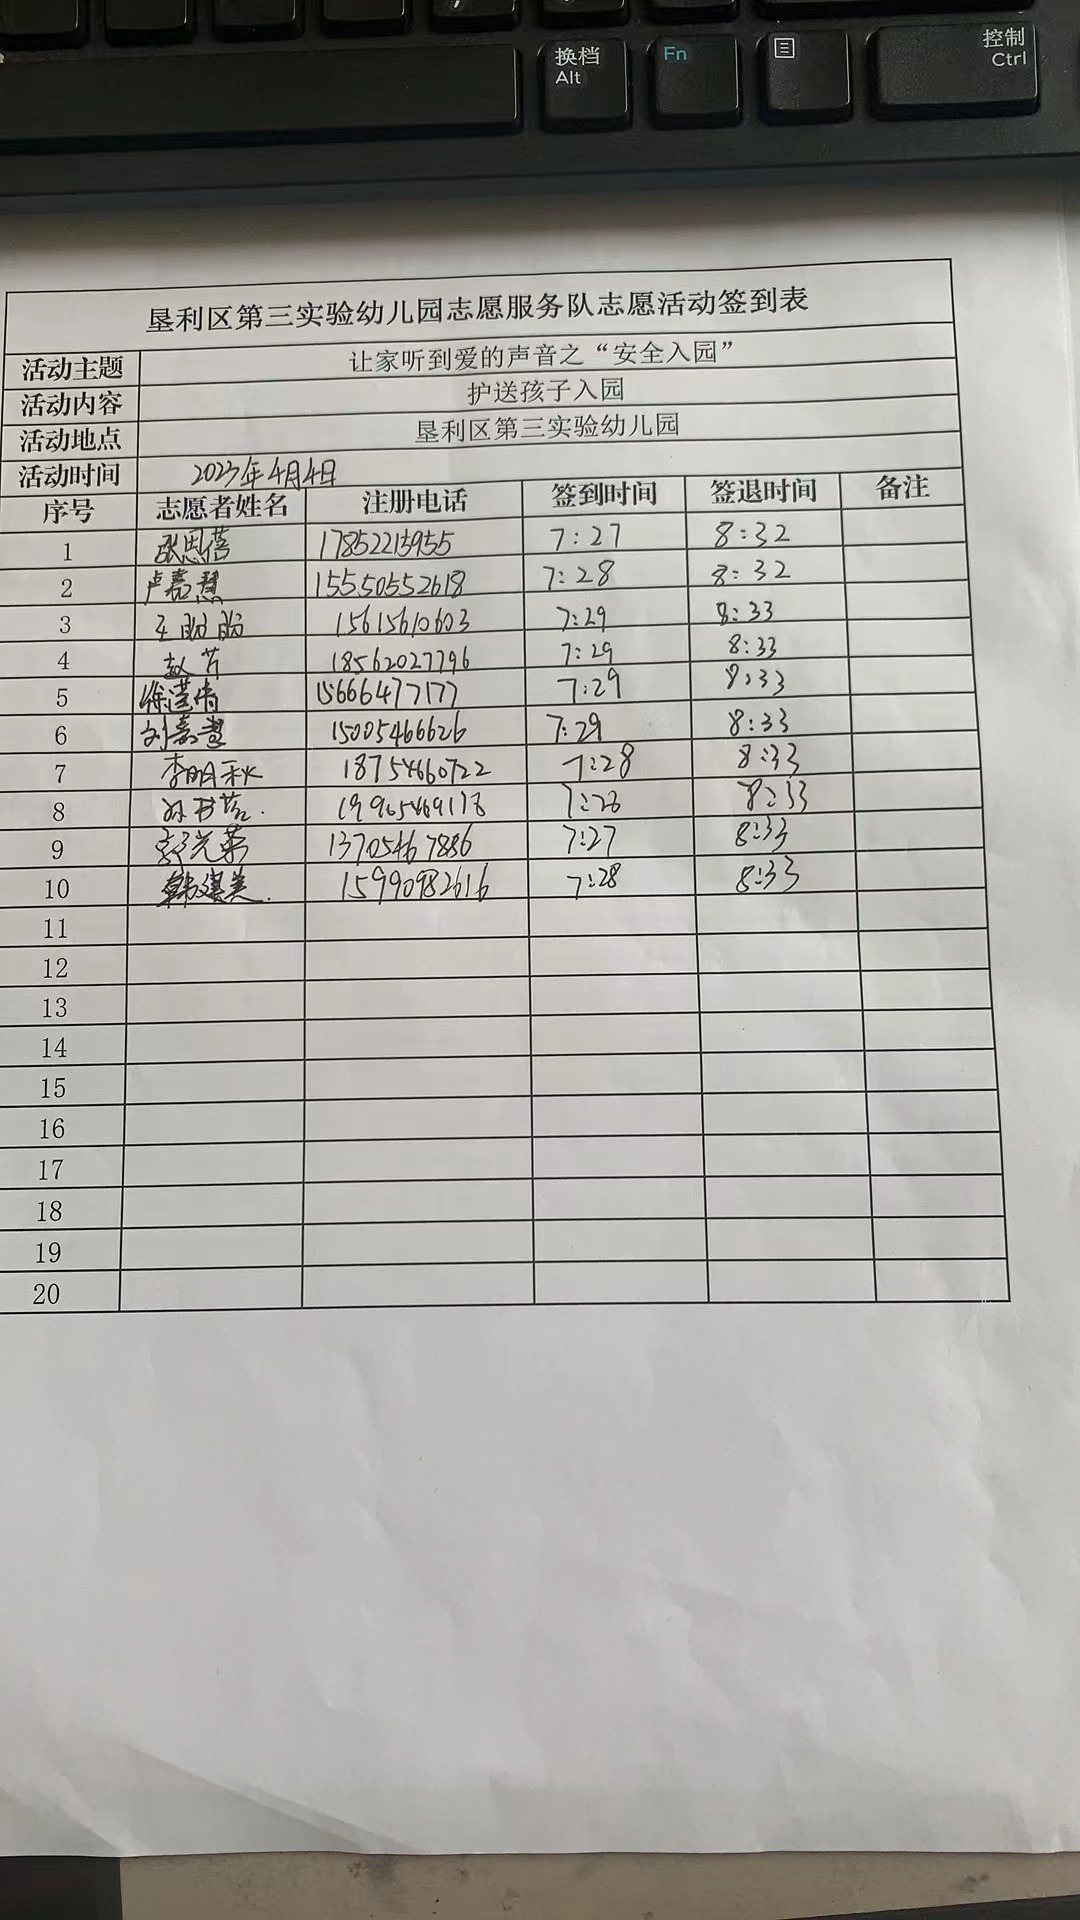 换档
Alt
Fn
控制
Ctrl
垦利区第三实验幼儿园志愿服务队志愿活动签到表
活动主题 让家听到爱的声音之“安全入园”
活动内容 护送孩子入园
活动地点 垦利区第三实验幼儿园
活动时间 2023年4月4日
序号 志愿者姓名 注册电话 签到时间 签退时间 备注
1 张思蓓 17852215955 7:27 8:32
2 卢嘉慧 15550552618 7:28 8:32
3 王盼盼 15615610603 7:29 8:33
4 赵芹 18562027796 7:29 8:33
5 15666477177 7:29 8:33
6 刘嘉慧 15005466626 7:29 8:33
7 李明秋 18754660722 7:28 8:33
8 7:28 8:33
9 郭光荣 13705467886 7:27 8:33
10 韩淇美. 15990982616 7:28 8:33
11
12
13
14
15
16
17
18
19
20